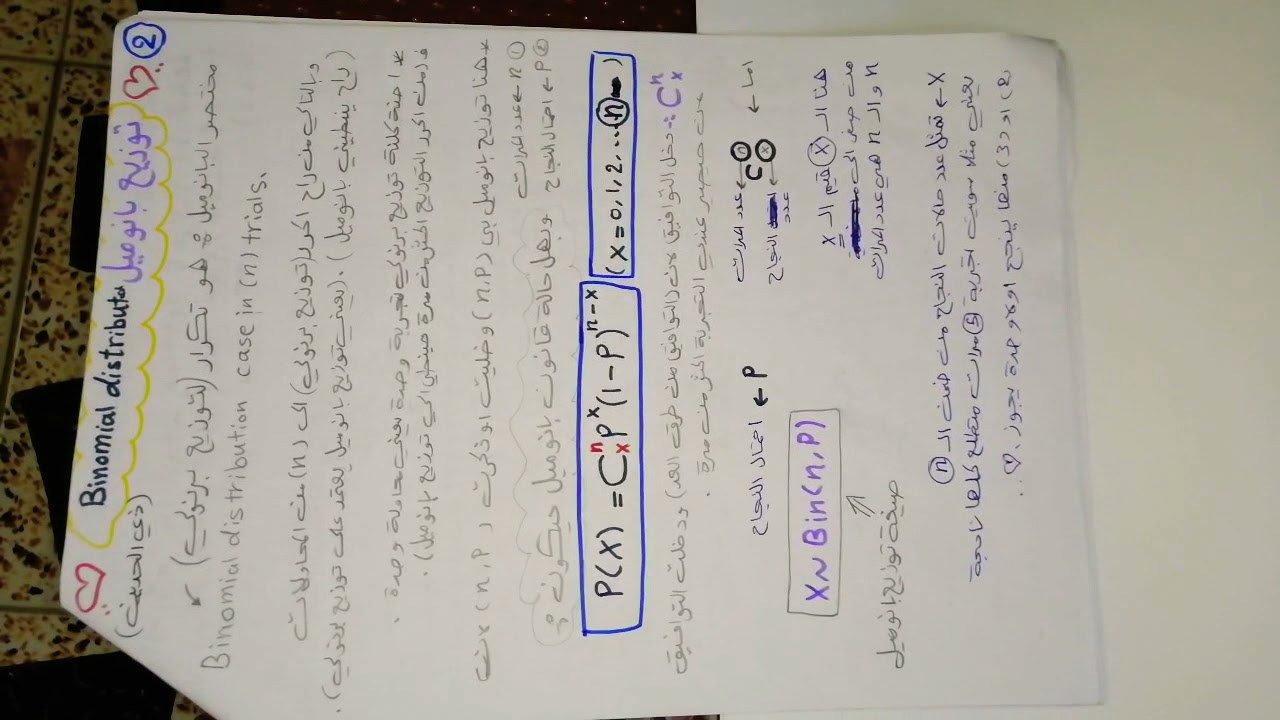 ② توزيع بانوميل Binomial distributor
(ذي الحدين)
مختصر البانوميل: هو تكرار (لتوزيع برنولي)
Binomial distribution case in (n) trials.
وبالتالي من راح اكرر (توزيع برنولي) الى (n) من المحاولات
راح ينطيني بانوميل). (يعني توزيع بانوميل يعتمد على توزيع برنولي).
* احنة كلنة توزيع برنولي تجربة وحدة يعني محاولة وحدة.
فمن اكرر التوزيع اكثر من مرة حينطيني توزيع بانوميل).
* هنا توزيع بانوميل بي (n,P) وخليت او ذكرت (n,P) لان
① n ← عدد المرات
② P ← احتمال النجاح
وبهل حالة قانون بانوميل حيكون:
P(X) = C^n_x P^x (1-P)^{n-x} (x = 0,1,2,...n)
C^n_x: دخل التوافيق لان (التوافيق من طرق العد) ودخلت التوافيق
من حيصير عندي التجربة اكثر من مرة.
اما ← C n ← عدد المرات
x ← عدد النجاح
P ← احتمال النجاح
هنا الـ X قيم الـ x
من صفر الى
n والـ n هي عدد المرات
X ~ Bin(n,P)
صيغة توزيع بانوميل
X ← تمثل عدد حالات النجاح من ضمن الـ n
يعني مثلا سويت تجربة 5 مرات متطلع كلها ناجحة
منها ينجح اولا وحدة يجوز.